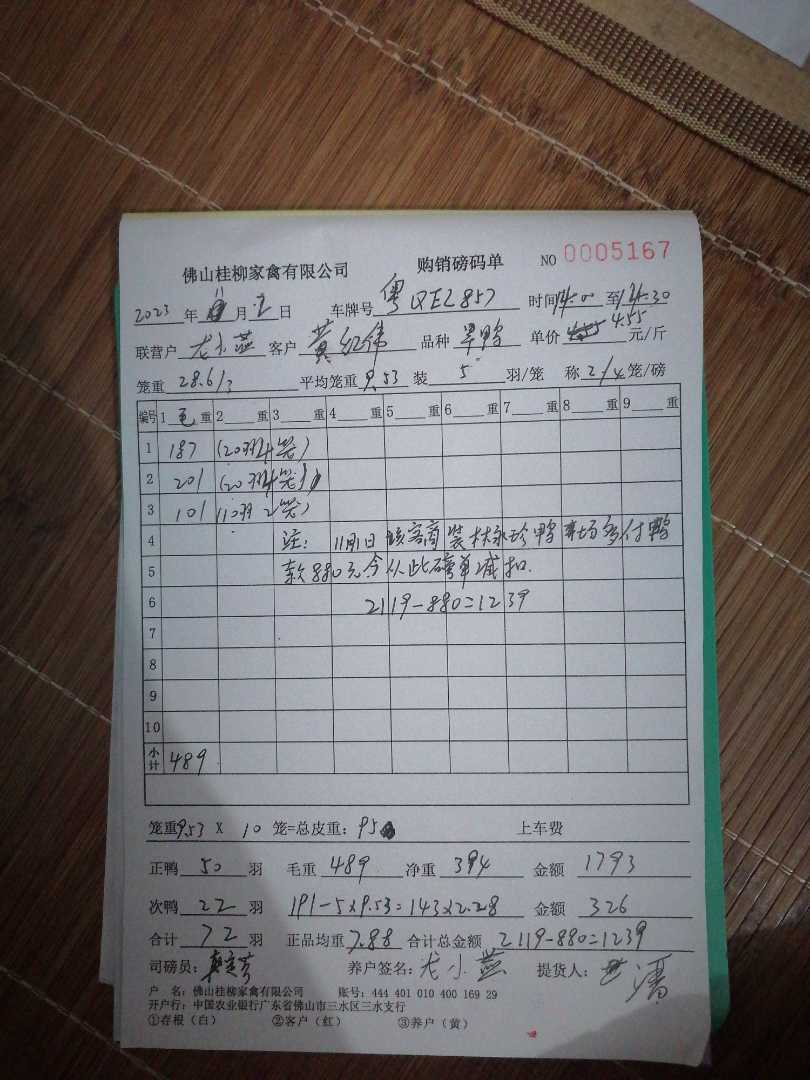 佛山桂柳家禽有限公司 购销磅码单 NO 0005167
2023年11月2日 车牌号 粤QEZ857 时间14:00至14:30
联营户 尤小燕 客户 黄红伟 品种 旱鸭 单价 4.55 元/斤
笼重 28.6/3 平均笼重 9.53 装 5 羽/笼 称 2/4 笼/磅
编号 1 毛 重 2 重 3 重 4 重 5 重 6 重 7 重 8 重 9 重
1 187 (20羽4笼)
2 201 (20羽4笼)
3 101 (10羽2笼)
4 注: 11月1日该客商装林永珍鸭 多付鸭
5 款880元今从此磅单减扣.
6 2119-880=1239
7
8
9
10
小计 489
笼重9.53 X 10 笼=总皮重: 95 上车费
正鸭 50 羽 毛重 489 净重 394 金额 1793
次鸭 22 羽 191-5×9.53=143×2.28 金额 326
合计 72 羽 正品均重 7.88 合计总金额 2119-880=1239
司磅员: 养户签名: 尤小燕 提货人:
户 名: 佛山桂柳家禽有限公司 账号: 444 401 010 400 169 29
开户行: 中国农业银行广东省佛山市三水区三水支行
①存根(白) ②客户(红) ③养户(黄)